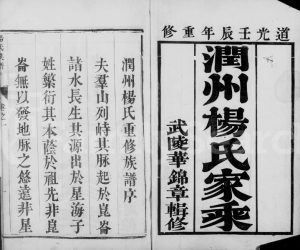 道光壬辰年重修
潤州楊氏家乘
武陵華錦章輯修
潤州楊氏重修族譜序
夫羣山列峙其脈起於崑崙
諸水長生其源出於星海子
姓繁衍其本蔭於祖先非崑
崙無以發地脈之悠遠非星